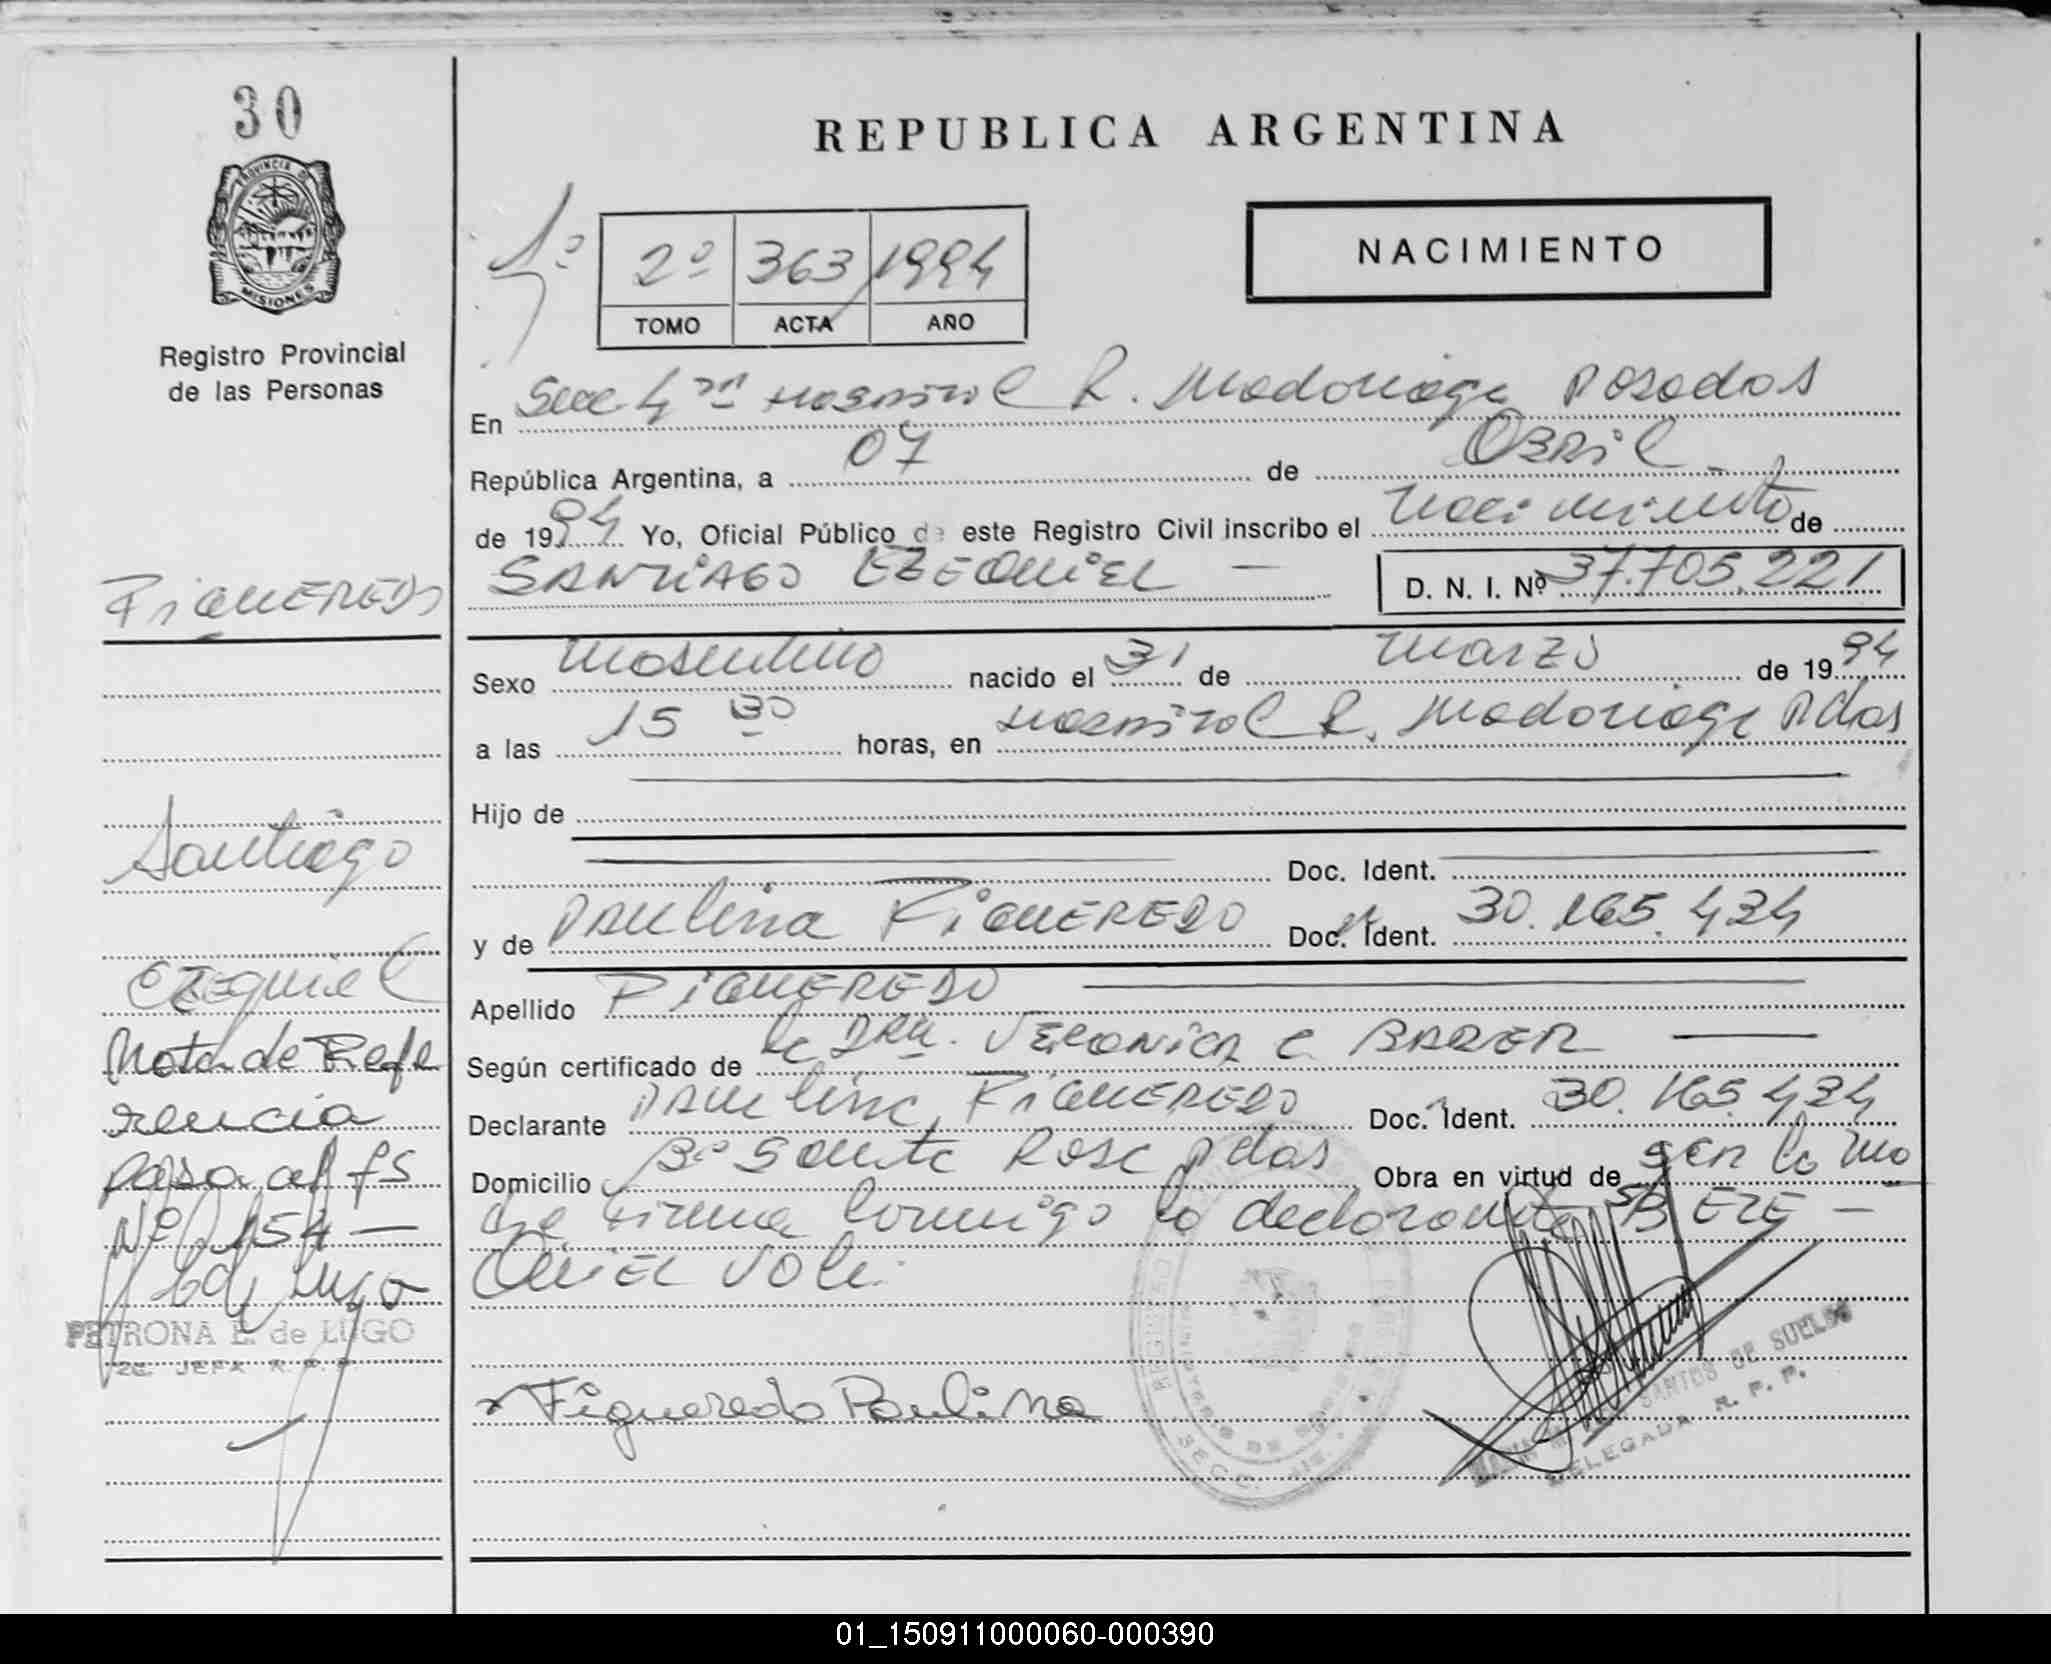 30
PROVINCIA DE
MISIONES
Registro Provincial
de las Personas
FIGUEREDO
Santiago
EZEQuiel
Nota de Refe
rencia
pasa al fs
Nº 154 —
PETRONA E. de LUGO
2da. JEFA R. P. P.
REPUBLICA ARGENTINA
1º
2º 363 1994
TOMO ACTA AÑO
NACIMIENTO
En Secc 4ta Hospital R. Madariaga Posadas
República Argentina, a 07 de Abril
de 1994 Yo, Oficial Público de este Registro Civil inscribo el Nacimiento de
SANTIAGO EZEQUIEL — D. N. I. Nº 37.705.221
Sexo Masculino nacido el 31 de Marzo de 1994
a las 15 30 horas, en Hospital R. Madariaga Pdas
Hijo de
Doc. Ident.
y de PAULina FIGUEREDO Doc. Ident. 30.165.434
Apellido FIGUEREDO
Según certificado de la DRA. VERONICA C. BARER
Declarante PAULina FIGUEREDO Doc. Ident. 30.165.434
Domicilio Bº Santa Rosa Pdas Obra en virtud de ser la ma
dre firma conmigo la declarante SB EZE —
QUIEL Vale.
Figueredo Paulina
SANTOS DE SUELOS
DELEGADA R. P. P.
01_150911000060-000390